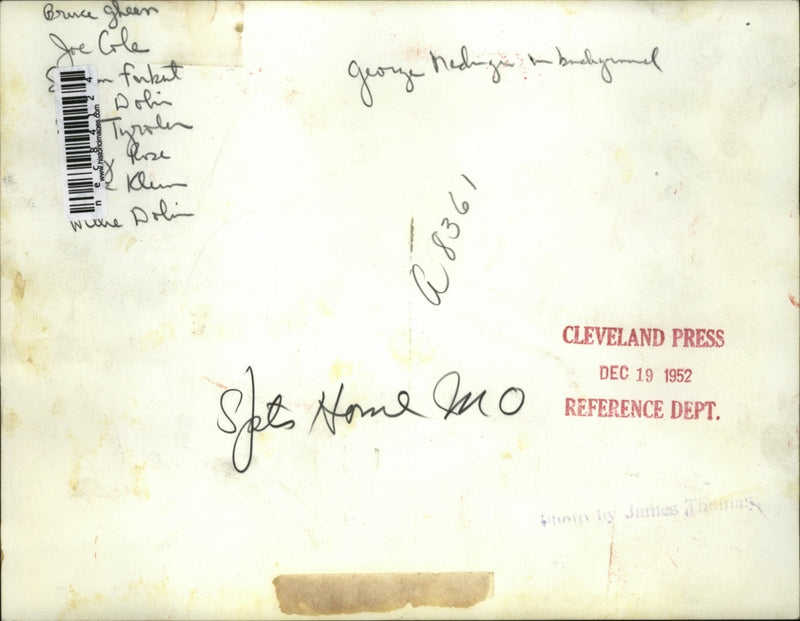 Bruce Gheen
Joe Cole
Forkut
Dolin
Tyroler
Rose
Klein
Willie Dolin
George in background
A 8361
Spts Home MO
CLEVELAND PRESS
DEC 19 1952
REFERENCE DEPT.
Photo by James Thomas